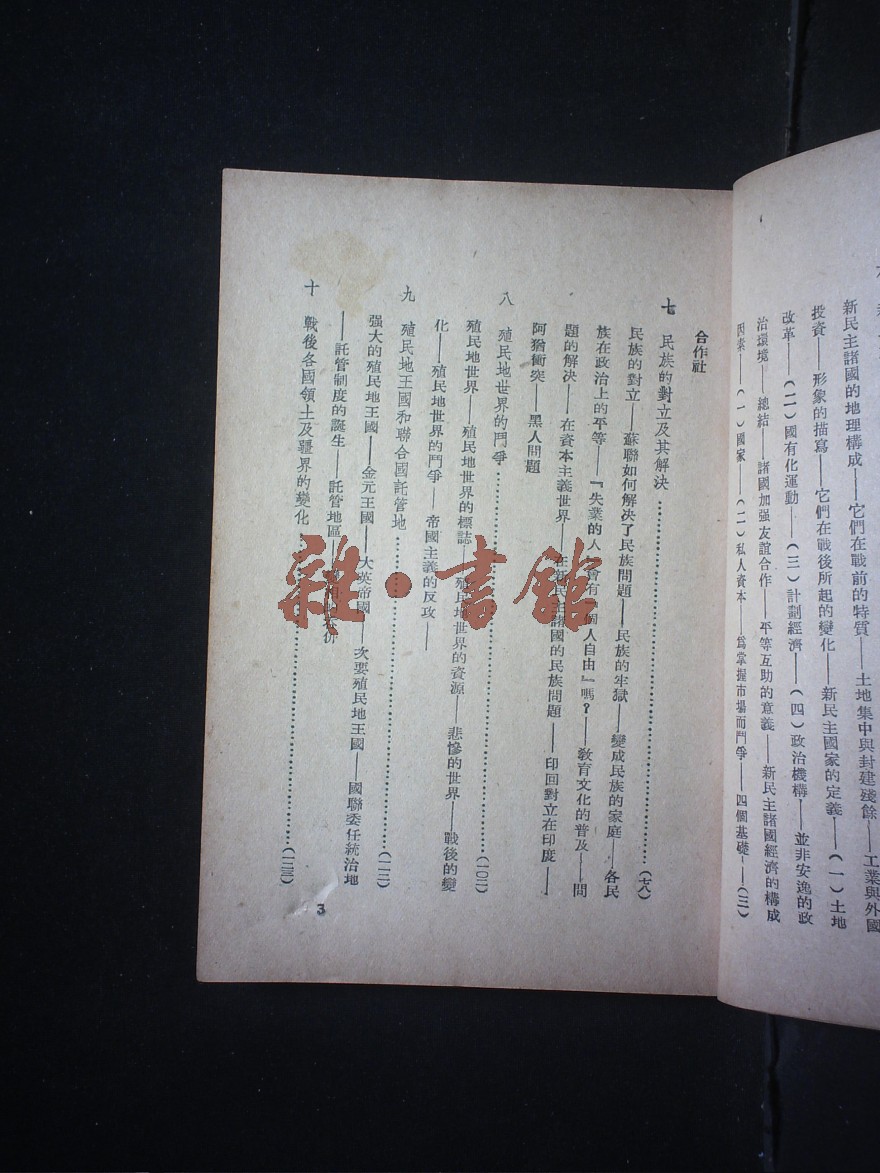 新民主諸國的地理構成——它們在戰前的特質——土地集中與封建殘餘——工業與外國
投資——形象的描寫——它們在戰後所起的變化——新民主國家的定義——(一)土地
改革——(二)國有化運動——(三)計劃經濟——(四)政治機構——並非安逸的政
治環境——總結——諸國加强友誼合作——平等互助的意義——新民主諸國經濟的構成
因素——(一)國家——(二)私人資本——爲掌握市場而鬥爭——四個基礎——(三)
合作社
七 民族的對立及其解決…………(七八)
民族的對立——蘇聯如何解決了民族問題——民族的牢獄——變成民族的家庭——各民
族在政治上的平等——『失業的人會有個人自由』嗎？——敎育文化的普及——問
題的解決——在資本主義世界——在新民主諸國的民族問題——印回對立在印度——
阿猶衝突——黑人問題
八 殖民地世界的鬥爭…………(一〇二)
殖民地世界——殖民地世界的標誌——殖民地世界的資源——悲慘的世界——戰後的變
化——殖民地世界的鬥爭——帝國主義的反攻——
九 殖民地王國和聯合國託管地…………(一一二)
强大的殖民地王國——金元王國——大英帝國——次要殖民地王國——國聯委任統治地
——託管制度的誕生——託管地區——
十 戰後各國領土及疆界的變化…………(一二三)
3
雜·書館